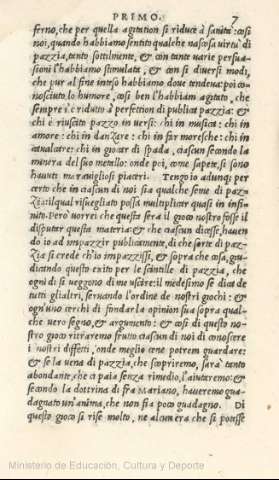 PRIMO. 7
ferno, che per quella agitation si riduce à sanita: cosi
noi, quando habbiamo sentito qualche nascosa uirtu di
pazzia, tanto sottilmente, & con tante uarie persua-
sioni l'habbiamo stimulata, & con si diuersi modi,
che pur al fine inteso habbiamo doue tendeua: poi co-
nosciuto lo humore, cosi ben l'habbiam agitato, che
sempre s'è ridutto à perfettion di publica pazzia: &
chi è riuscito pazzo in uersi: chi in musica: chi in
amore: chi in danzare: chi in far moresche: chi in
caualcare: chi in giocar di spada, ciascun secondo la
minera del suo metallo: onde poi, come sapete, si sono
hauuti marauigliosi piaceri. Tengo io adunque per
certo che in ciascun di noi sia qualche seme di paz-
zia: il qual risuegliato possa multiplicar quasi in infi-
nito. Però uorrei che questa sera il gioco nostro fosse il
disputar questa materia: & che ciascun dicesse, hauen
do io ad impazzir publicamente, di che sorte di paz-
zia si crede ch'io impazzissi, & sopra che cosa, giu-
dicando questo exito per le scintille di pazzia, che
ogni dì si ueggono di me uscire: il medesimo se dica de
tutti gli altri, seruando l'ordine de nostri giochi: &
ogn'uno cerchi di fondar la opinion sua sopra qual-
che uero segno, & argumento: & cosi di questo no-
stro gioco ritraremo frutto ciascun di noi di conoscere
i nostri diffetti, onde meglio ce ne potrem guardare:
& se la uena di pazzia, che scopriremo, sarà tanto
abondante, che ci paia senza rimedio, l'aiutaremo: &
secondo la dottrina di fra Mariano, haueremo gua-
dagnato un'anima, che non fia poco guadagno. Di
questo gioco si rise molto, ne alcun era che si potesse
Ministerio de Educación, Cultura y Deporte